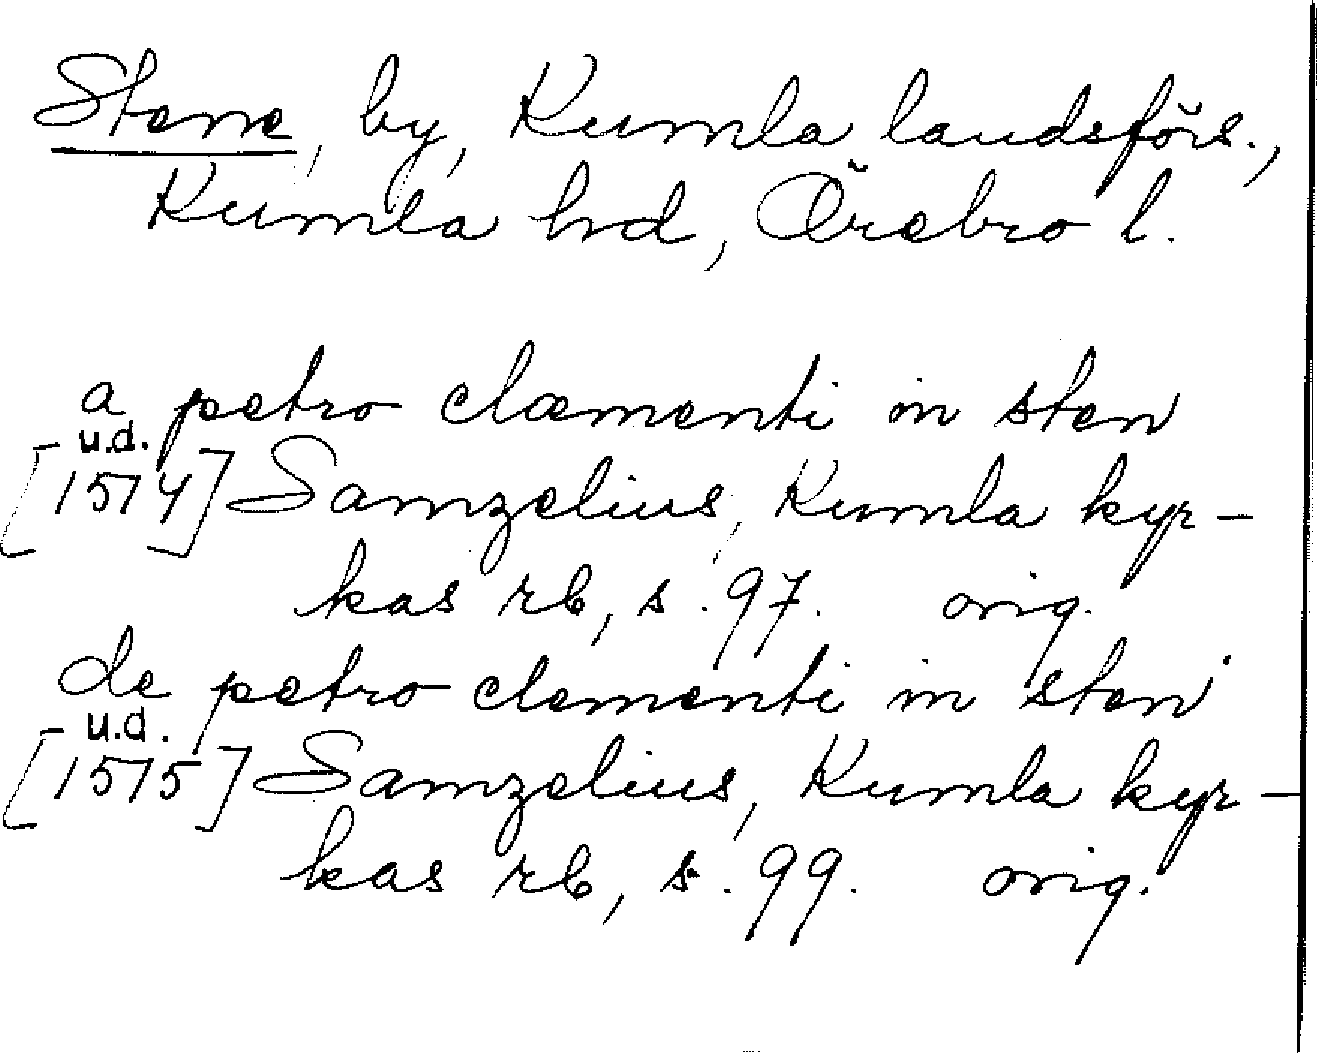 Stene, by, Kumla landsförs.,
Kumla hd, Örebro l.
a petro clæmenti in sten
u.d.
[1574] Samzelius, Kumla kyr-
kas rb, s. 97. orig.
de petro clementi in sten
u.d.
[1575] Samzelius, Kumla kyr-
kas rb, s. 99. orig.